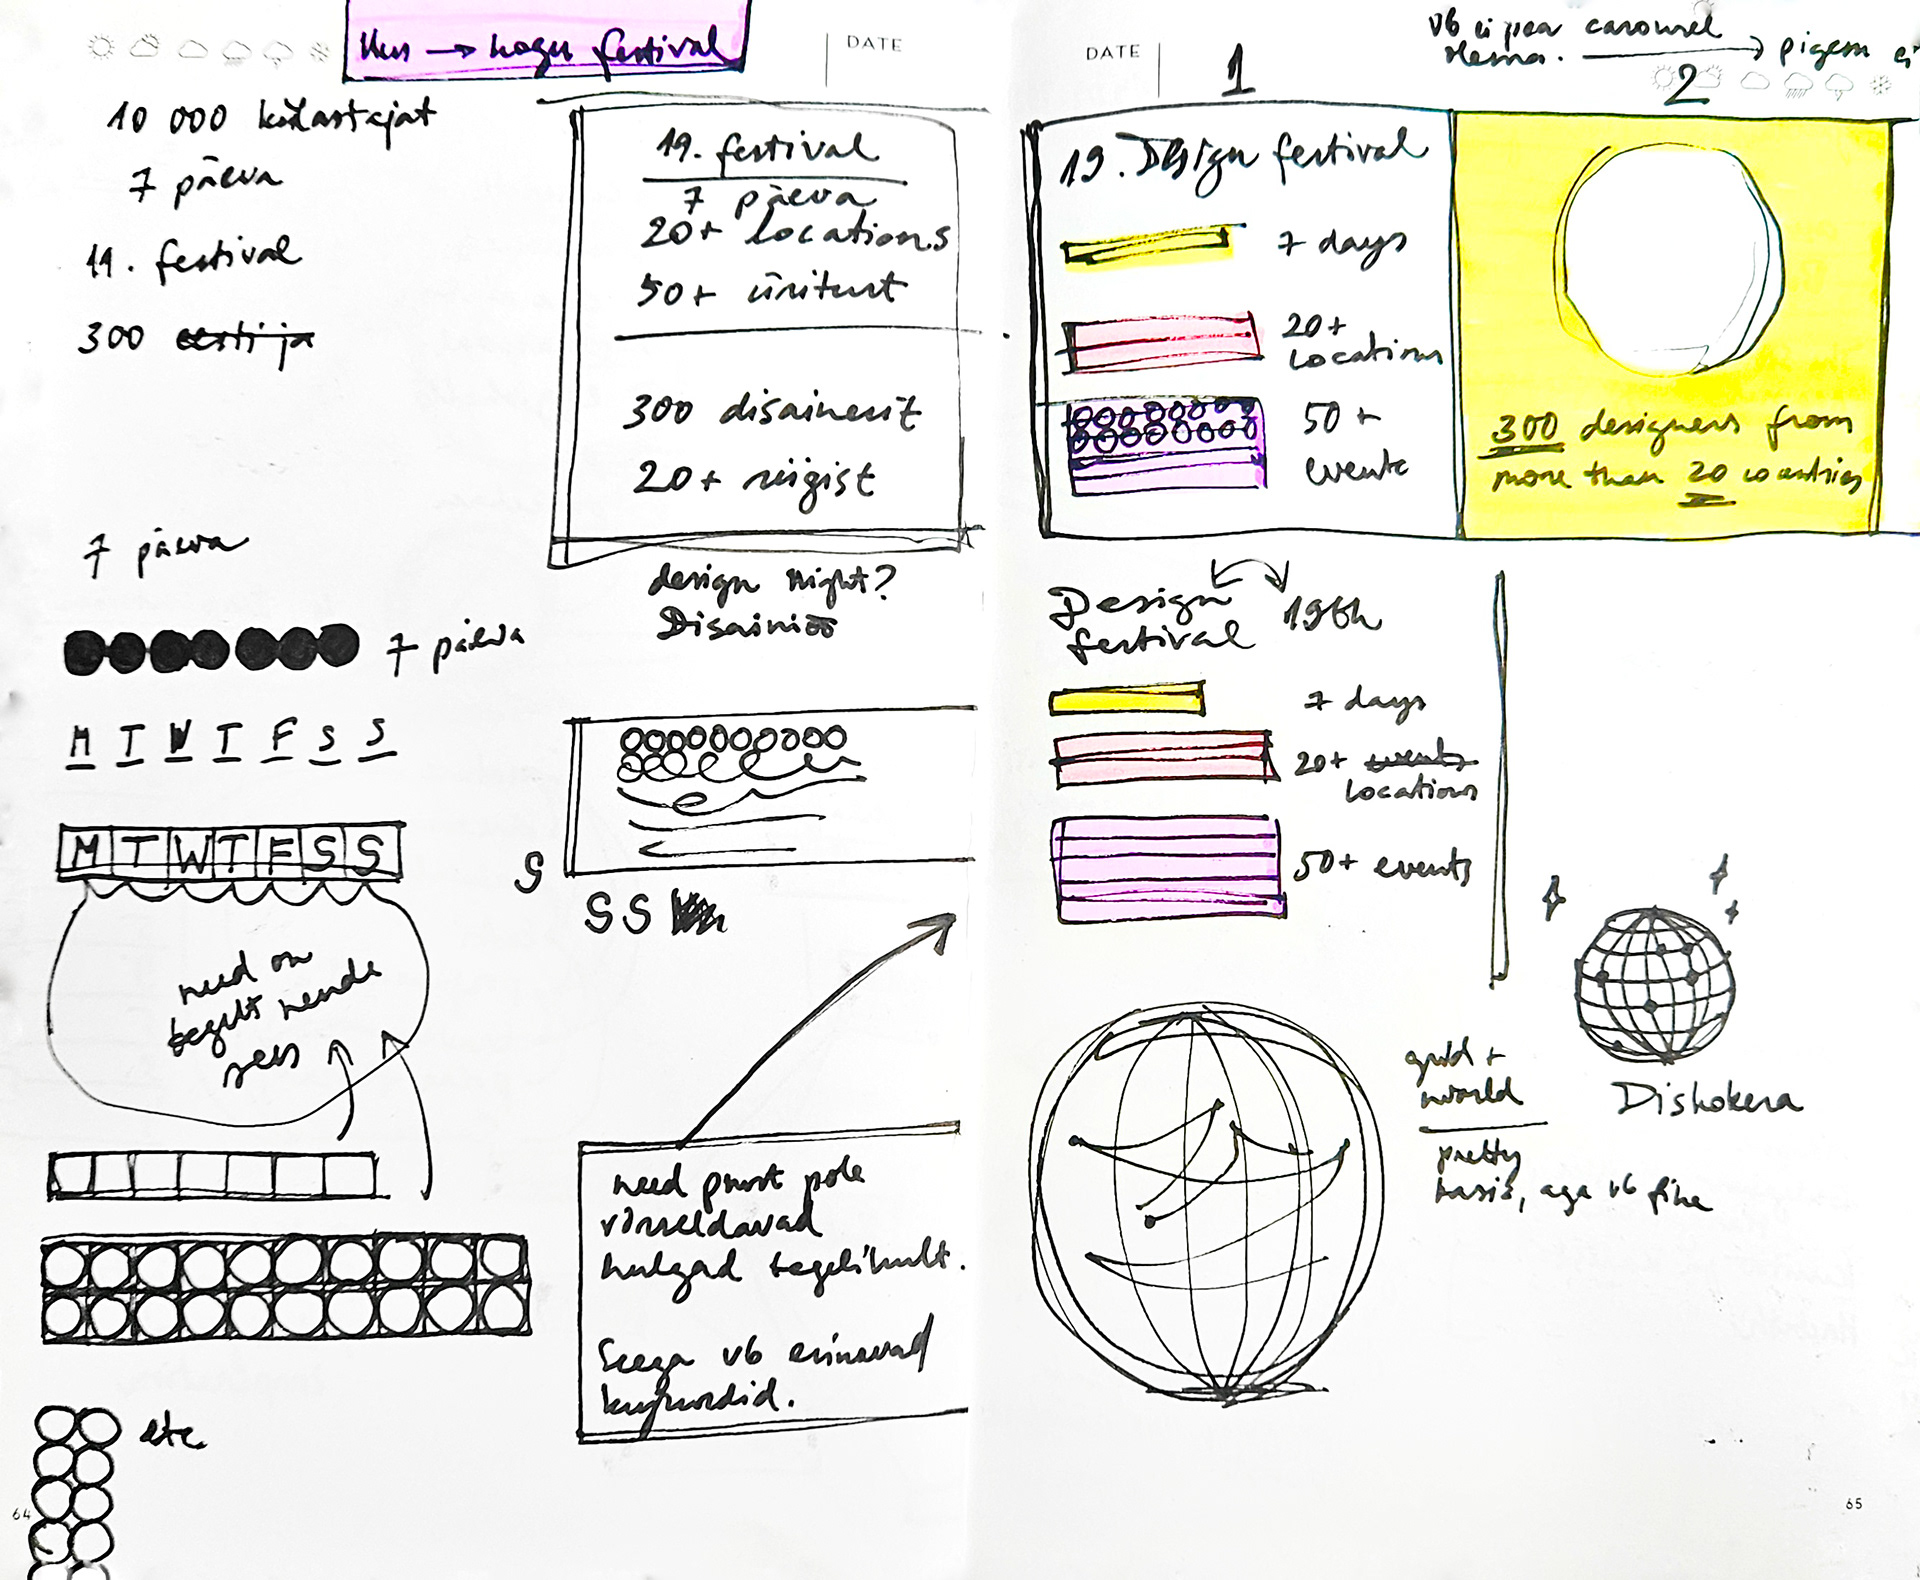 → kogu festival
DATE
10 000 külastajat
7 päeva
19. festival
300 eesti ja
7 päeva
7 päeva
M T W T F S S
M T W T F S S
need on
tegelt nende
sees
etc
64
19. festival
7 päeva
20+ locations
50+ üritust
300 disainerit
20+ riigist
design night?
Disainiöö
S
S S
need pruot pole
võrreldavad
hulgad tegelikult.
Seega vb erinevad
kujundid.
DATE
1
vb ei pea carousel
olema. → pigem ei
2
19. Design festival
7 days
20+
locations
50+
events
300 designers from
more than 20 countries
Design
festival
19th
7 days
20+ events
locations
50+ events
grid +
world
pretty
basic, aga vb fine
Diskokera
65